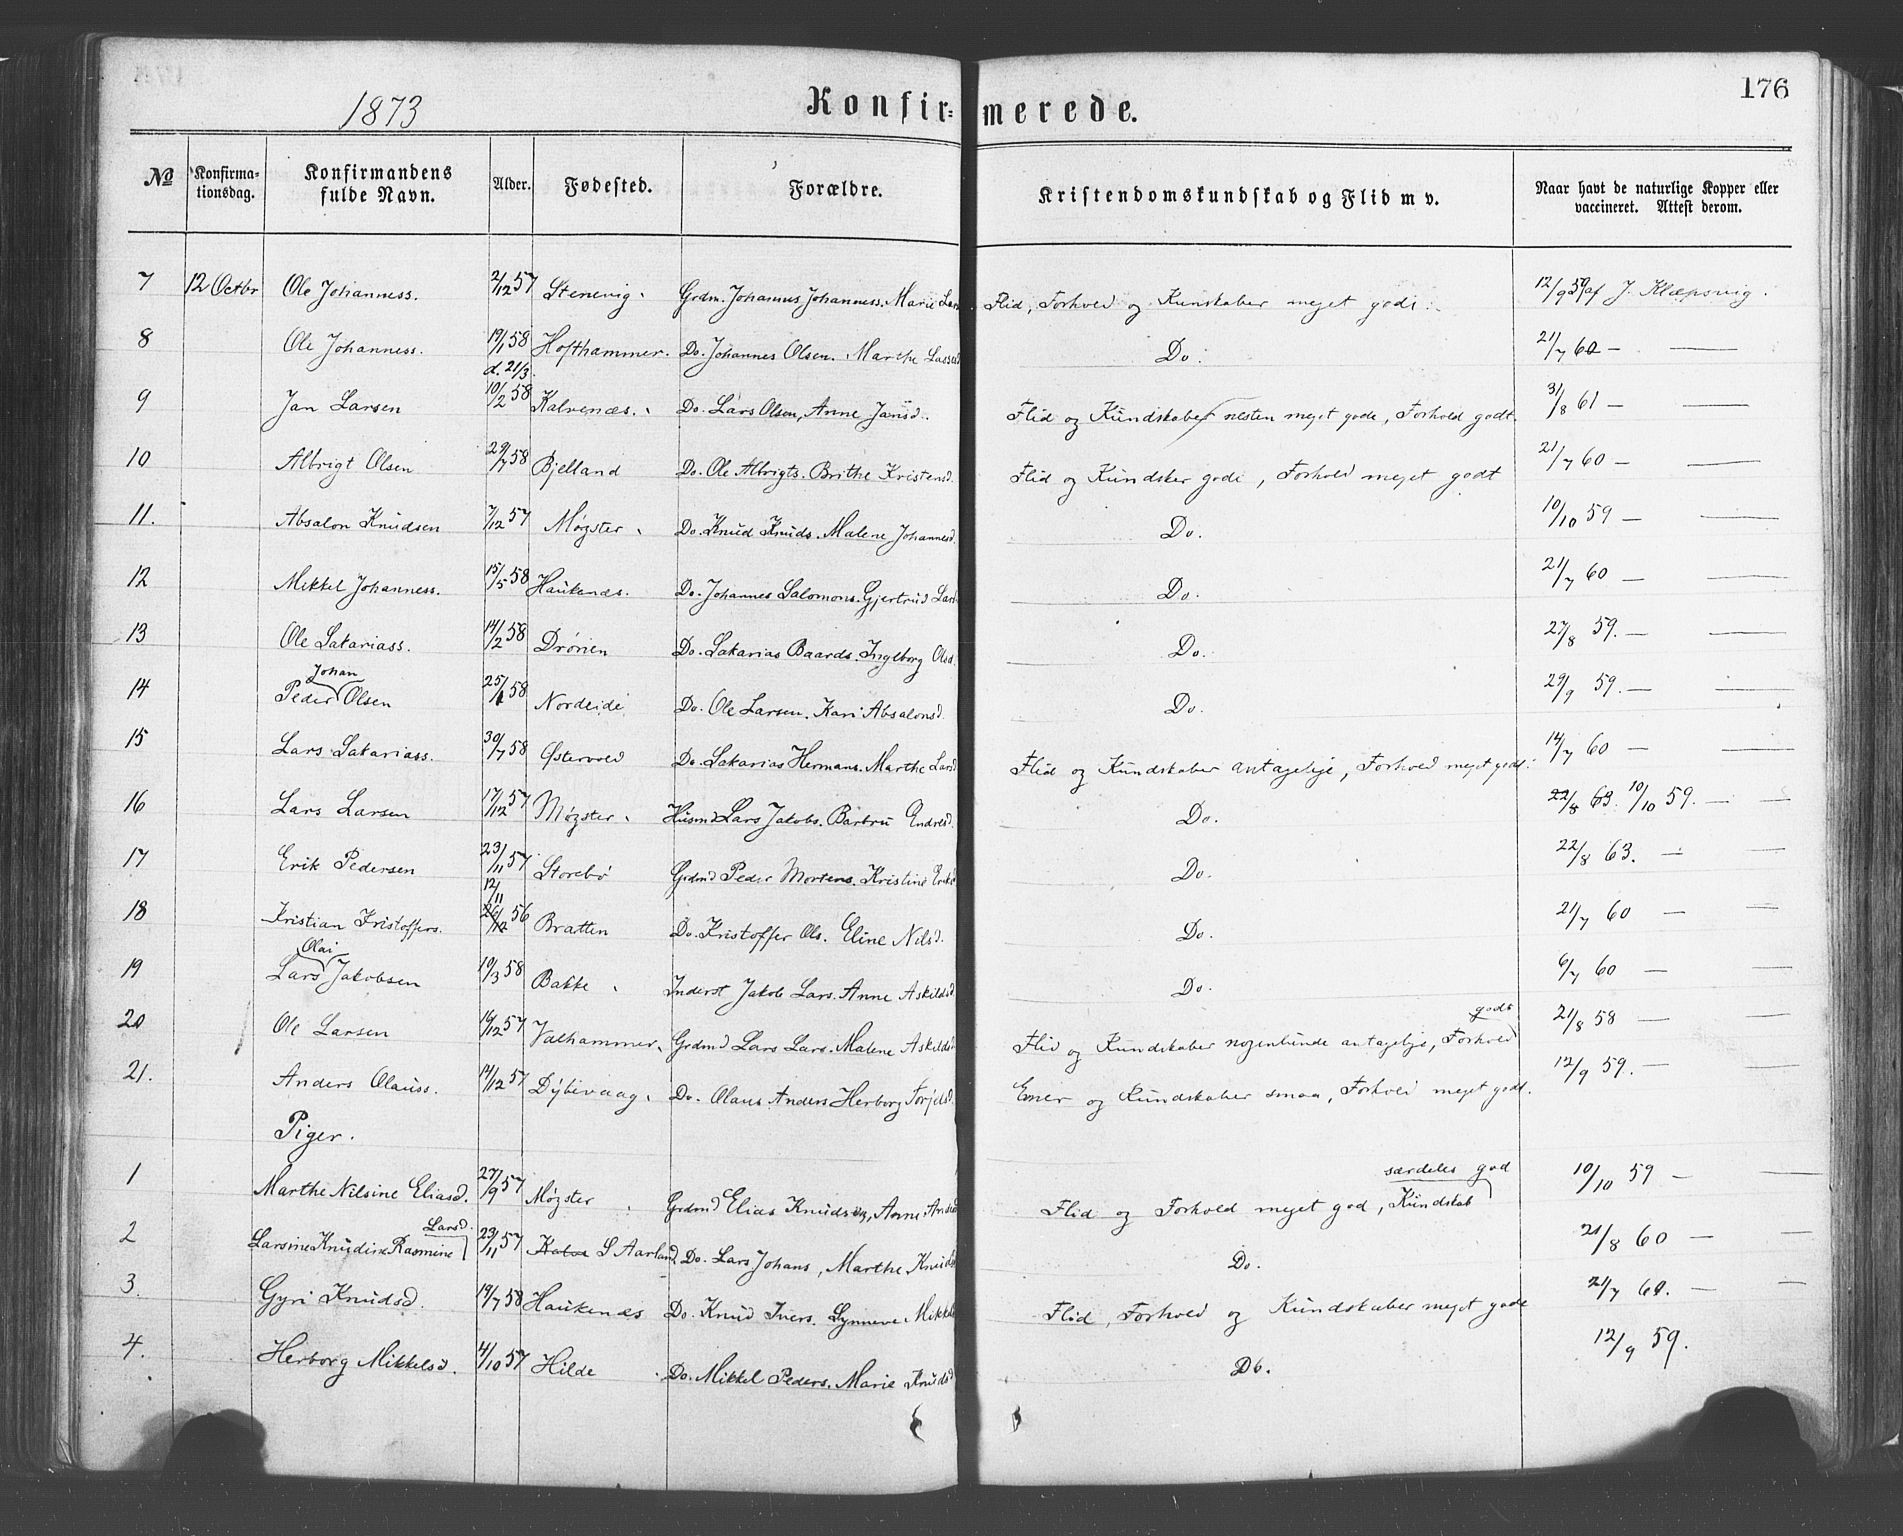 176
1873 Konfir= merede.
№ Konfirma- tionsdag. Konfirmandens fulde Navn. Alder. Fødested. Forældre. Kristendomskundskab og Flid m v. Naar havt de naturlige Kopper eller vaccineret. Attest derom.
7 12 Octbr Ole Johanness. 2/12 57 Stenevig Grdm. Johannes Johanness. Marie Lars Flid, Forhold og Kunskaber meget gode. 12/9 59 af J. Klæpsvig.
8 Ole Johanness. 19/1 58 d. 21/3. Hofthammer. Do. Johannes Olsen. Marthe Lassed Do. 21/7 60 —
9 Jan Larsen 10/2 58 Kalvenæs. Do. Lars Olsen, Anne Jansd. Flid og Kundskaber nesten meget gode, Forhold godt. 31/8 61 —
10 Albrigt Olsen 29/7 58 Bjelland Do. Ole Albrigts. Brithe Kristensd. Flid og Kundsker gode, Forhold meget godt 21/7 60 —
11. Absalon Knudsen 7/12 57 Møgster Do. Knud Knuds. Malene Johannesd. Do. 10/10 59 —
12 Mikkel Johanness. 15/5 58 Haukenæs. Do. Johannes Salomons. Gjertrud Lars Do. 21/7 60 —
13 Ole Sakariass. 14/2 58 Drønen Do. Sakarias Baards. Ingeborg Olsd. Do. 27/8 59. —
14 Peder Johan Olsen 25/1 58 Nordeide Do. Ole Larsen. Kari Absalonsd. Do. 29/9 59. —
15 Lars Sakariass. 30/7 58 Østervold Do. Sakarias Hermans. Marthe Larsd Flid og Kundskaber antagelige, Forhold meget godt. 14/7 60 —
16 Lars Larsen 17/12 57 Møgster Husmd Lars Jakobs. Barbru Endresd. Do. 22/8 63. 10/10 59. —
17 Erik Pedersen 23/11 57 Storebø Grdmd Peder Mortens. Kristine Eriksd Do. 22/8 63. —
18 Kristian Kristoffers. 12/11 26/12 56 Bratten Do. Kristoffer Ols. Eline Nilsd. Do. 21/7 60 —
19 Lars Olai Jakobsen 10/3 58 Bakke Inderst Jakob Lars. Anne Askildsd Do. 6/7 60 —
20 Ole Larsen 16/12 57 Valhammer Grdmd Lars Lars. Malene Askildsd Flid og Kundskaber nogenlunde antagelige, Forhold godt 21/8 58 —
21. Anders Olauss. 14/12 57 Dybevaag. Do. Olaus Anders Herborg Torjelsd. Evner og Kundskaber smaa, Forhold meget godt. 12/9 59. —
Piger.
1 Marthe Nilsine Eliasd. 27/9 57 Møgster Grdmd Elias Knuds, Anne Andersd Flid og Forhold meget god, Kundskab særdeles god 10/10 59 —
2 Larsine Knudine Rasmine Larsd. 29/11 57 Kalve S Aarland Do. Lars Johans, Marthe Knudsd Do. 21/8 60 —
3. Gyri Knudsd. 19/7 58 Haukenæs Do. Knud Ivers. Synneve Mikkels Flid, Forhold og Kundskaber meget gode 21/7 60. —
4. Herborg Mikkelsd. 4/10 57 Hilde Do. Mikkel Peders. Marie Knudsd Do. 12/9 59.